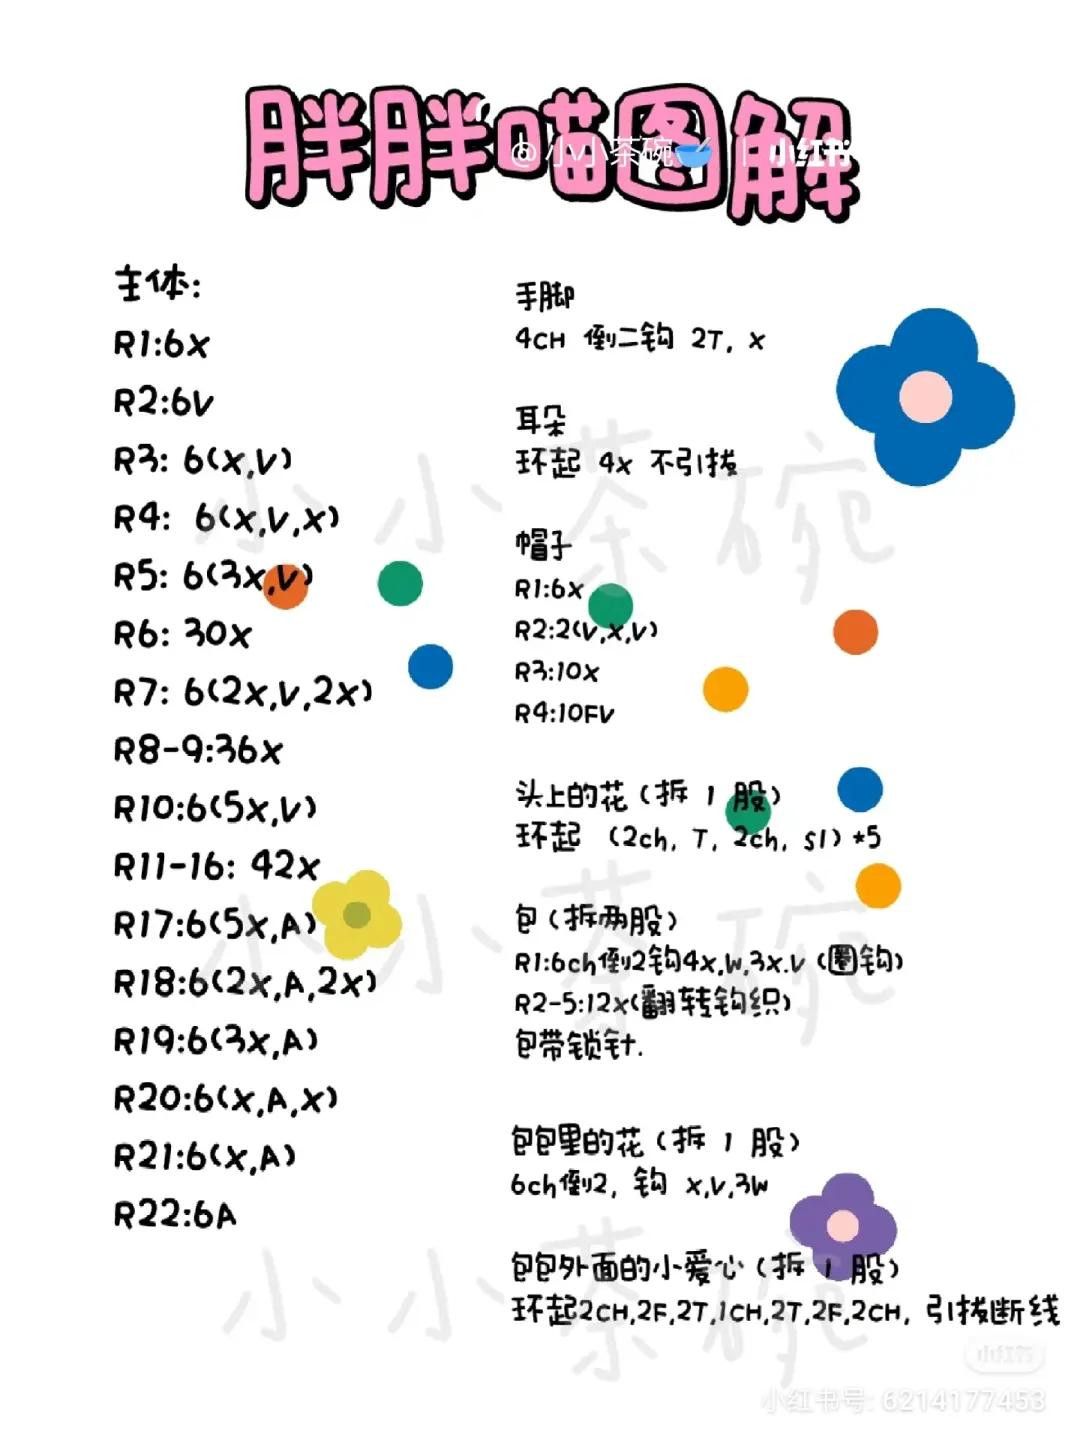 胖胖喵图解
@小小茶碗 | 小红书
主体:
R1:6x
R2:6V
R3: 6(x,V)
R4: 6(x,V,x)
R5: 6(3x,V)
R6: 30x
R7: 6(2x,V,2x)
R8-9:36x
R10:6(5x,V)
R11-16: 42x
R17:6(5x,A)
R18:6(2x,A,2x)
R19:6(3x,A)
R20:6(x,A,x)
R21:6(x,A)
R22:6A
手脚
4CH 倒二钩 2T, x
耳朵
环起 4x 不引拔
帽子
R1:6x
R2:2(V,x,V)
R3:10x
R4:10FV
头上的花(拆 1 股)
环起 (2ch, T, 2ch, sl)*5
包(拆两股)
R1:6ch倒2钩4x,W,3x,V(圈钩)
R2-5:12x(翻转钩织)
包带锁针.
包包里的花(拆 1 股)
6ch倒2, 钩 x,V,3W
包包外面的小爱心(拆 1 股)
环起2CH,2F,2T,1CH,2T,2F,2CH, 引拔断线
小小茶碗
小小茶碗
小小茶碗
小红书
小红书号: 6214177453